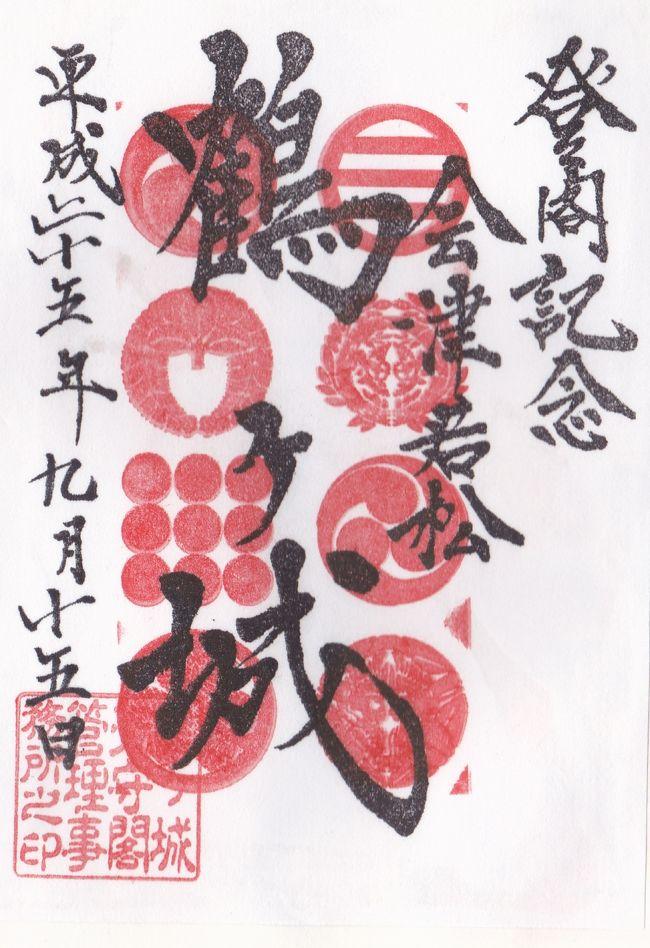 登閣記念
会津若松
鶴ヶ城
平成二十五年九月十五日
城
守閣
管理事
務所之印